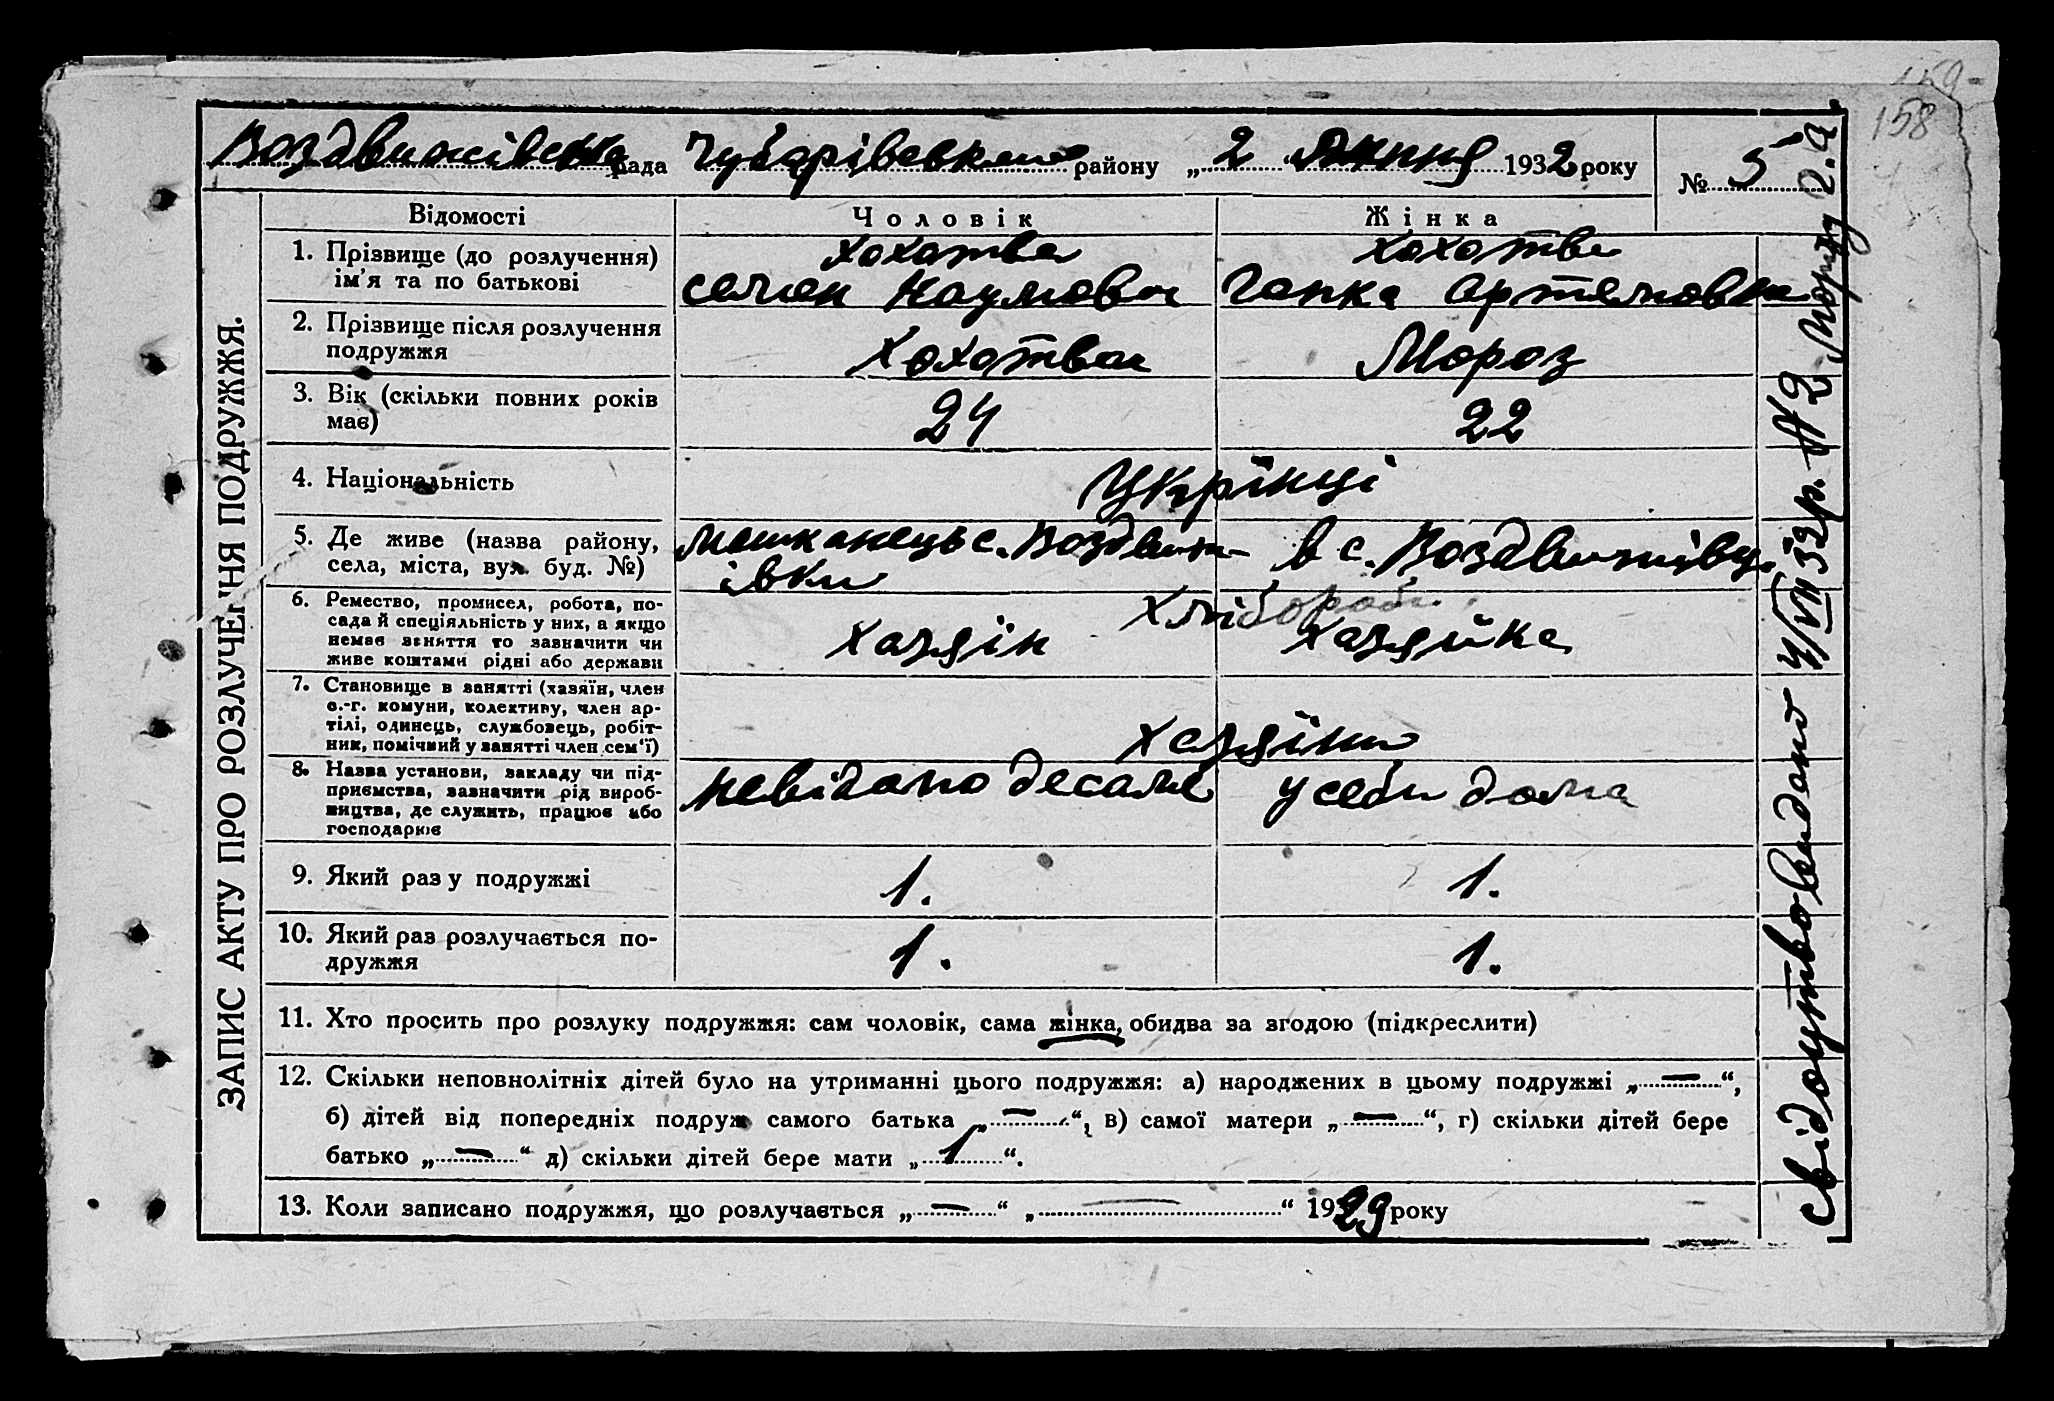 158
Воздвижівська рада Чубарівського району „ 2 “ липня 1932 року № 5
ЗАПИС АКТУ ПРО РОЗЛУЧЕННЯ ПОДРУЖЖЯ.
Відомості Чоловік Жінка
1. Прізвище (до розлучення) Хохотва Хохотва
ім’я та по батькові Семен Наумович Гапка Артемовна
2. Прізвище після розлучення
подружжя Хохотва Мороз
3. Вік (скільки повних років
має) 24 22
4. Національність Укрїнці
5. Де живе (назва району, мешканець с. Воздвиж- в с. Воздвижівці
села, міста, вул. буд. №) івки
6. Ремество, промисел, робота, по- Хлібороби
сада й спеціяльність у них, а якщо
немає заняття то зазначити чи Хазяін Хазяйка
живе коштами рідні або держави
7. Становище в занятті (хазяїн, член
с.-г. комуни, колективу, член ар-
тілі, одинець, службовець, робіт-
ник, помічний у занятті член сем'ї) Хазяіни
8. Назва установи, закладу чи під- невідомо десаме у себи дома
приємства, зазначити рід вироб-
ництва, де служить, працює або
господарює
9. Який раз у подружжі 1. 1.
10. Який раз розлучається по-
дружжя 1. 1.
11. Хто просить про розлуку подружжя: сам чоловік, сама жінка, обидва за згодою (підкреслити)
12. Скільки неповнолітніх дітей було на утриманні цього подружжя: а) народжених в цьому подружжі „ — “,
б) дітей від попередніх подруж самого батька „ — “, в) самої матери „ — “, г) скільки дітей бере
батько „ — “ д) скільки дітей бере мати „ 1 “.
13. Коли записано подружжя, що розлучається „ — “ „ — “ 1929 року
свідоцтво видано 4/VII 32 р. № 2 Морозу Г.А